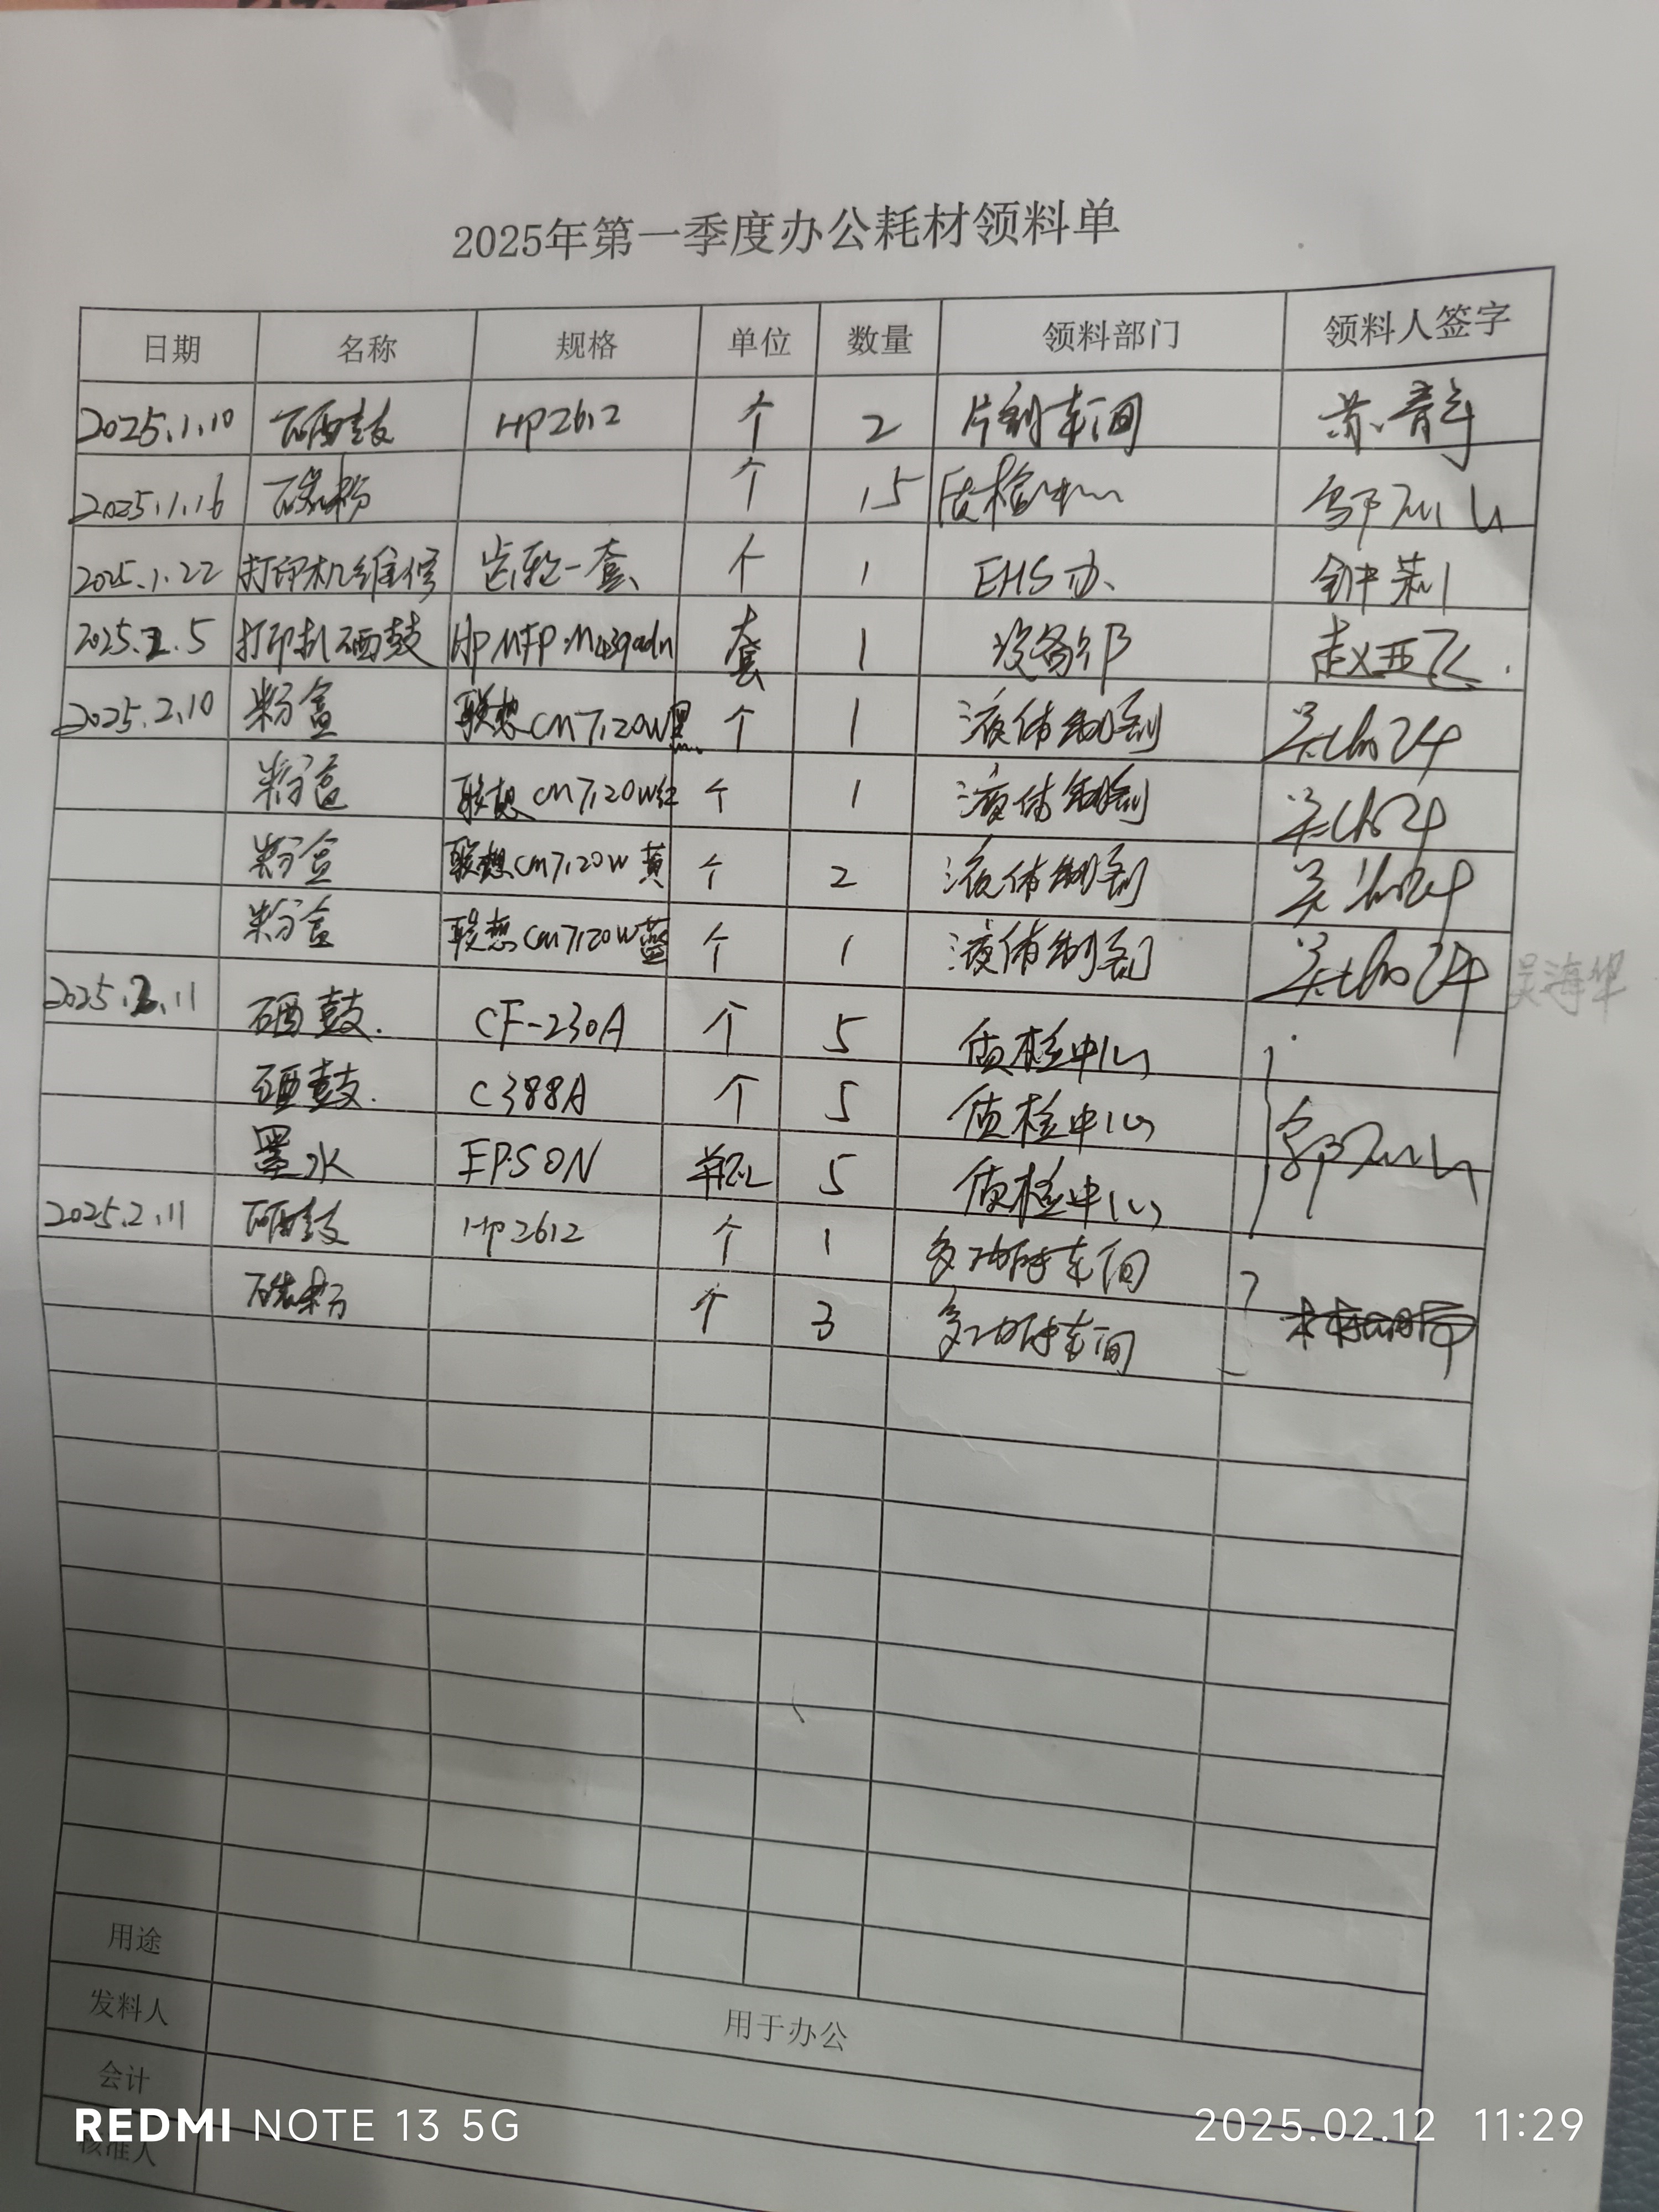 2025年第一季度办公耗材领料单
日期 名称 规格 单位 数量 领料部门 领料人签字
2025.1.10 硒鼓 HP2612 个 2 片剂车间
2025.1.16 碳粉 个 15 质检中心
2025.1.22 打印机维修 齿轮一套 个 1 EHS办
2025.2.5 打印机硒鼓 HP MFP M439adn 套 1 设备部 赵亚飞
2025.2.10 粉盒 联想CM7120W黑 个 1 液体制剂
粉盒 联想CM7120W红 个 1 液体制剂
粉盒 联想CM7120W黄 个 2 液体制剂
粉盒 联想CM7120W蓝 个 1 液体制剂 吴海华
2025.2.11 硒鼓. CF-230A 个 5 质检中心
硒鼓. C388A 个 5 质检中心
墨水 EPSON 瓶 5 质检中心
2025.2.11 硒鼓 HP2612 个 1 多功能车间
碳粉 个 3 多功能车间
用途
发料人 用于办公
会计
核准人
REDMI NOTE 13 5G 2025.02.12 11:29